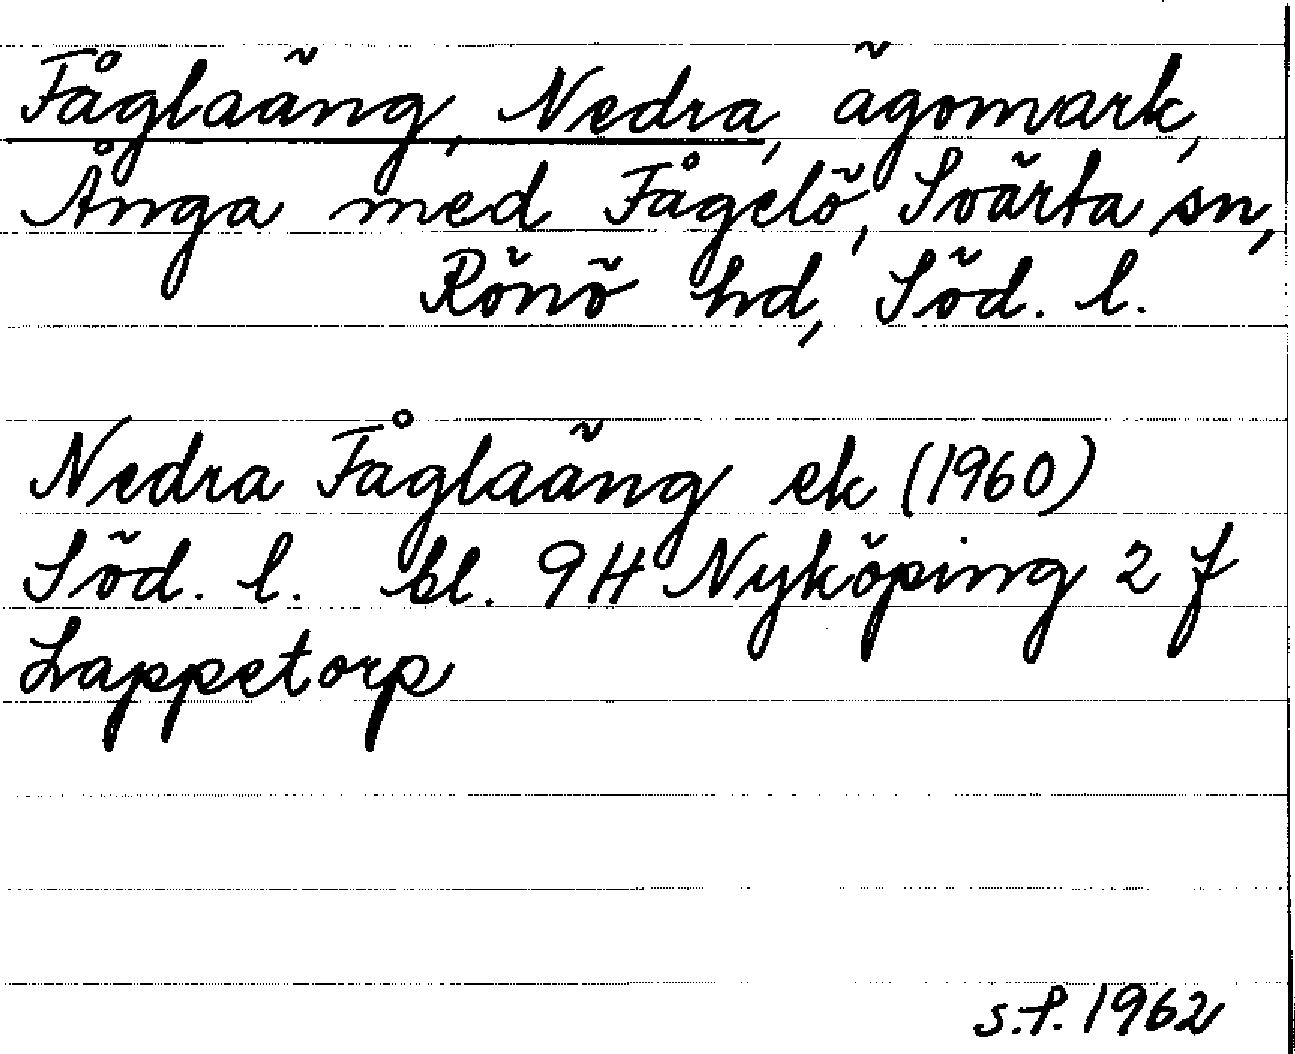 Fåglaäng, Nedra, ägomark,
Ånga med Fågelö, Svärta sn,
Rönö hd, Söd. l.
Nedra Fåglaäng ek (1960)
Söd. l. bl. 9H Nyköping 2 f
Lappetorp
s.f. 1962